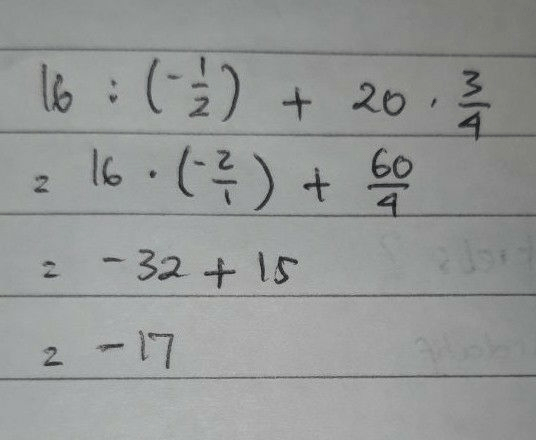 16 : (-1/2) + 20 · 3/4
= 16 · (-2/1) + 60/4
= -32 + 15
= -17